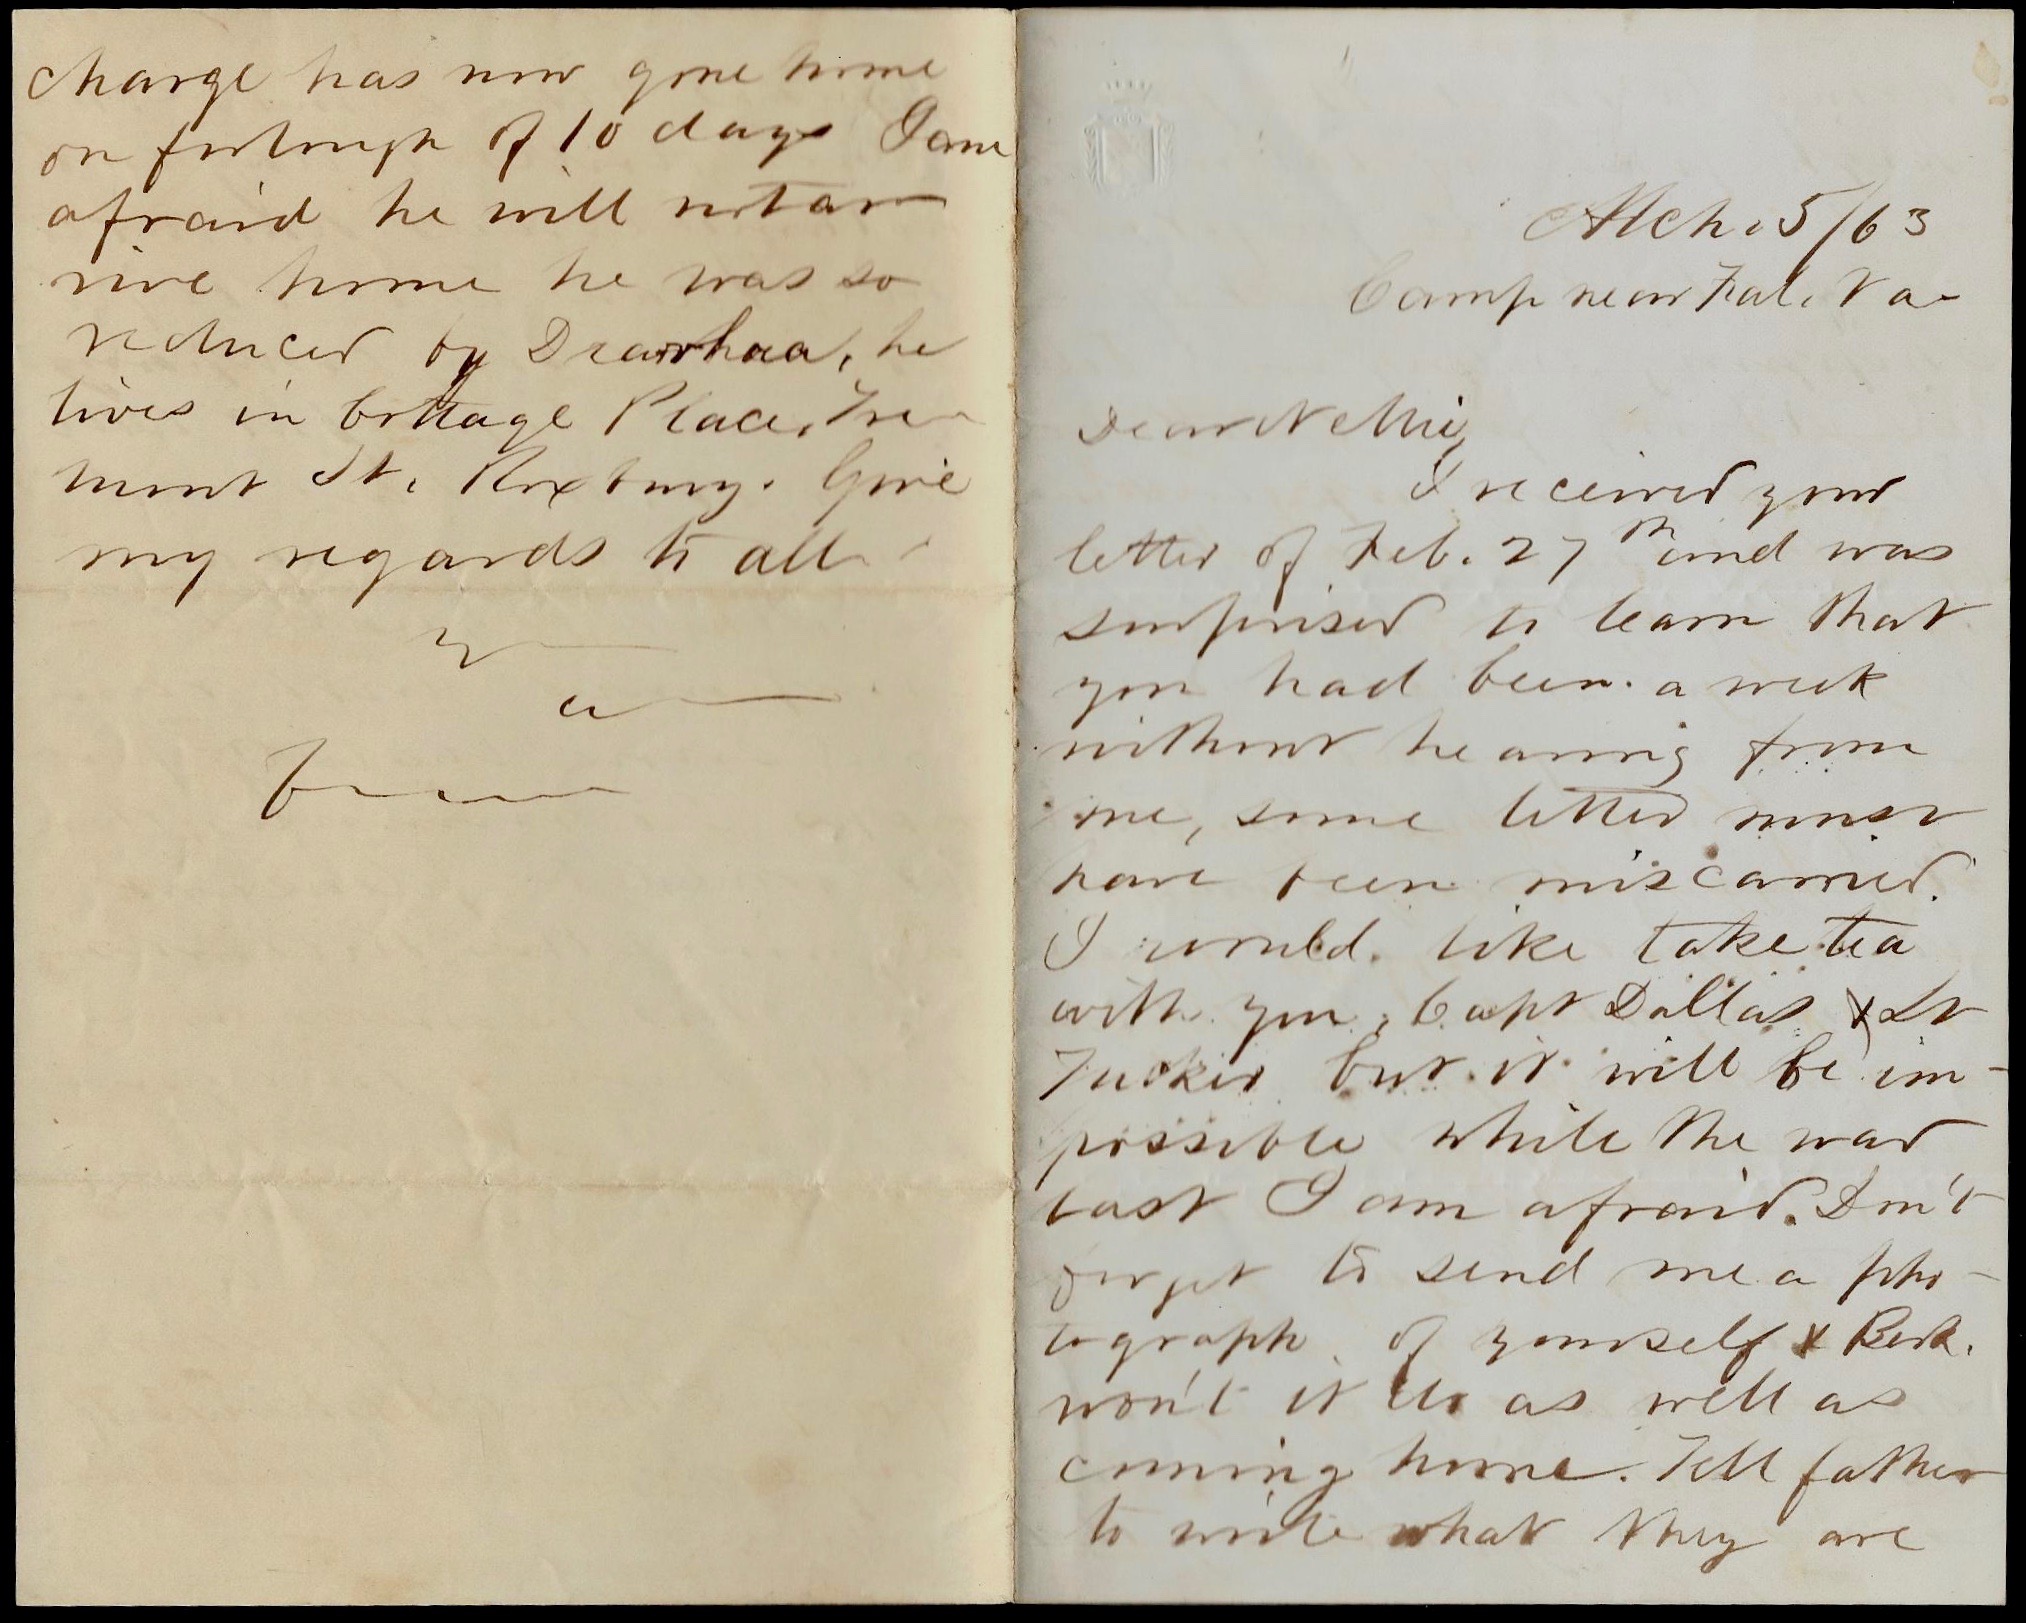 Mch. 5/63
Camp near Fal. Va-
Dear Nellie,
I received your
letter of Feb. 27th and was
surprised to learn that
you had been a week
without hearing from
me, some letter must
have been miscarried.
I would like take tea
with you, Capt Dallas & Lt
Tucker but it will be im-
possible while the war
last I am afraid. Don't
forget to send me a pho-
tograph of yourself &
won't it do as well as
coming home. Tell father
to write what they are
charge has now gone home
on furlough of 10 days I am
afraid he will not ar
rive home he was so
reduced by Diarrhaa, he
lives in Cottage Place, Tre-
mont St. Roxbury. Give
my regards to all